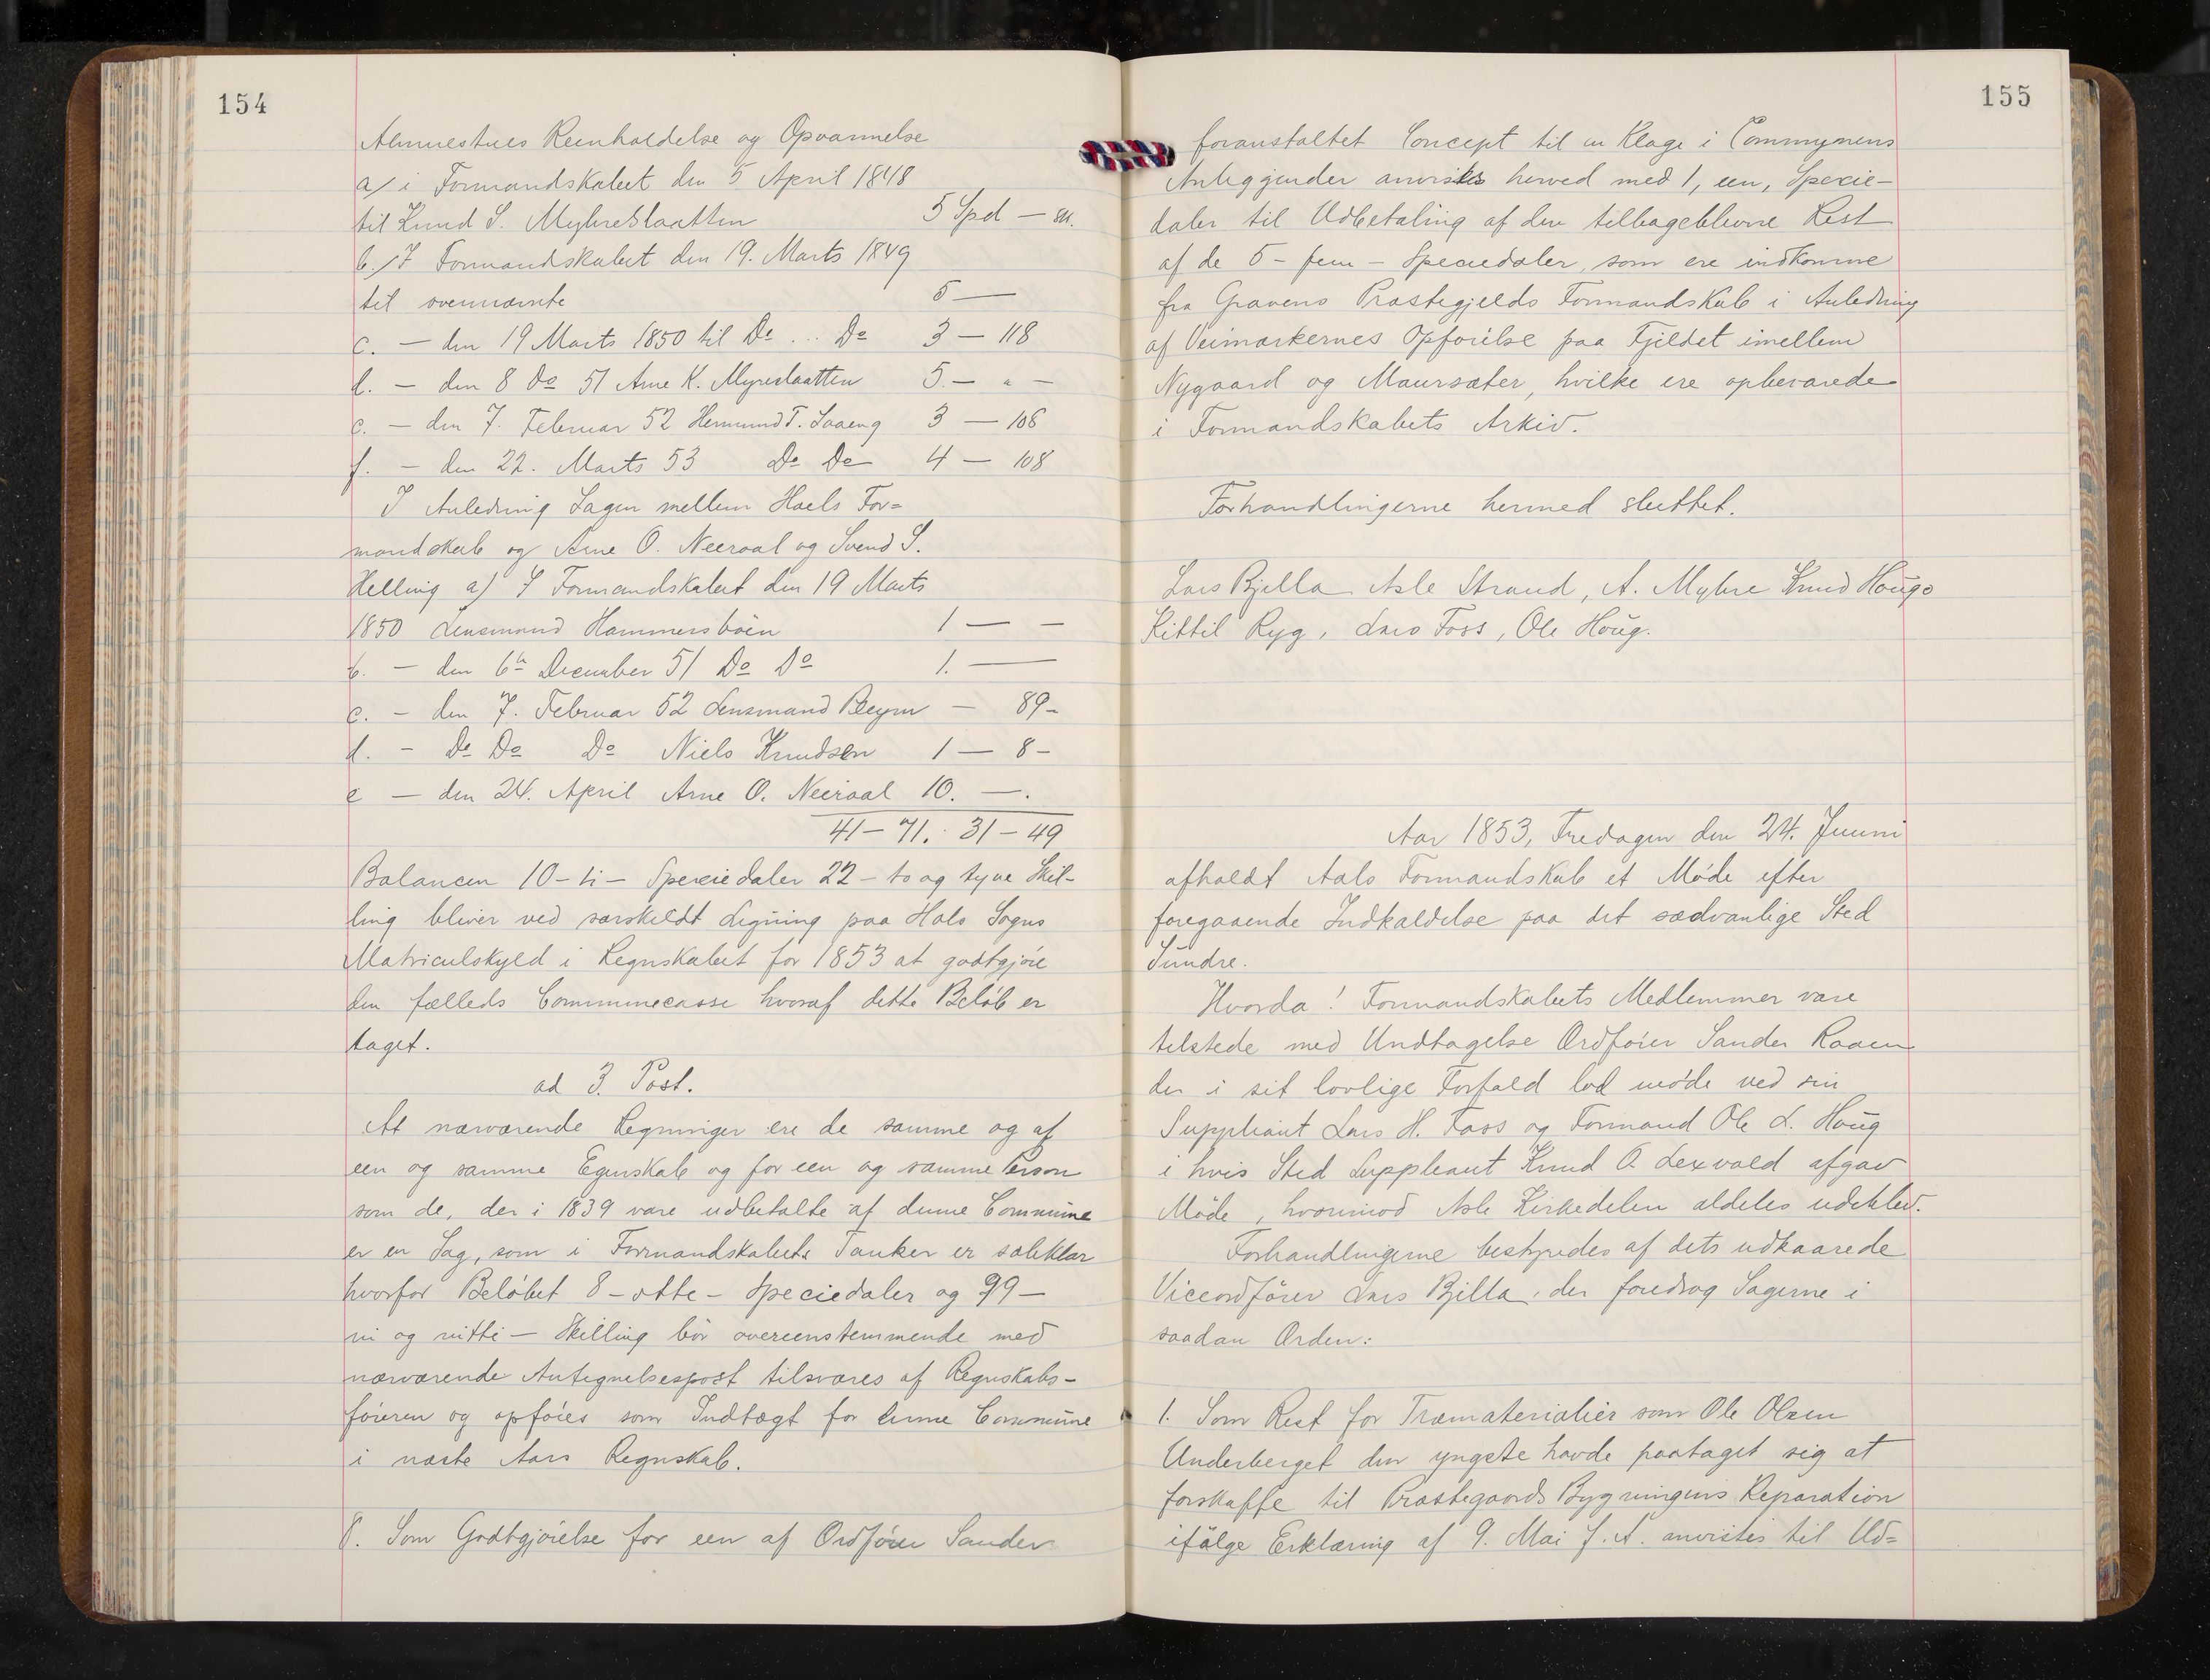 154
Almuestues Reenholdelse og Opvarmelse
a/ i Formandskabet den 5 April 1848
til Knud S. Myhreslaatten 5 Spd — sk.
b./ I Formandskabet den 19. Marts 1849
til ovennævnte 5 —
c. — den 19 Marts 1850 til Do ... Do 3 — 118
d. — den 8 do 51 Arne K. Myreslaatten 5. — " —
e. — den 7. Februar 52 Hermund T. Saaeng 3 — 106
f. — den 22. Marts 53 Do Do 4 — 108
I Anledning Sagen mellem Haels For=
mandskab og Arne O. Neeraal og Svend S.
Helling a) I Formandskabet den 19 Marts
1850 Lensmand Hammersbøen 1 — —
b. — den 6te December 51 Do Do 1. —
c. — den 7. Februar 52 Lensmand Beyer — 89-
d. — Do Do Do Niels Knudsen 1 — 8 -
e — den 24. April Arne O. Neeraal 10. — .
41 — 71. : 31 — 49
Balancen 10 - ti - Speciedaler 22 - to og tyve Skil-
ling bliver ved særskildt Ligning paa Hols Sogns
Matriculskyld i Regnskabet for 1853 at godtgjøre
den fælleds Communecasse hvoraf dette Beløb er
taget.
ad 3. Post.
At nærværende Regninger ere de samme og af
een og samme Egenskab og for een og samme Person
som de, der i 1839 vare udbetalte af denne Commune
er en Sag, som i Formandskabets Tanker er soleklar
hvorfor Beløbet 8 - otte - Speciedaler og 99 —
ni og nitti — Skilling bør overeensstemmende med
nærværende Antegnelsespost tilsvares af Regnskabs-
føreren og opføres som Indtægt for denne Commune
i næste Aars Regnskab.
8. Som Godtgjørelse for een af Ordfører Sander
155
foranstaltet Concept til en Klage i Commynens
Anliggender anvistes herved med 1, een, Specie-
daler til Udbetaling af den tilbageblevne Rest
af de 5 - fem - Speciedaler, som ere indkomne
fra Gravens Præstegjelds Formandskab i Anledning
af Veimærkernes Opførelse paa Fjeldet imellem
Nygaard og Maursæter, hvilke ere opbevarede
i Formandskabets Arkiv.
Forhandlingerne hermed sluttet.
Lars Bjella Asle Strand, A. Myhre Knud Hougo
Kittil Ryg, Lars Foss, Ole Houg.
Aar 1853, Fredagen den 24. Juuni
afholdt Aals Formandskab et Møde efter
foregaaende Indkaldelse paa det sædvanlige Sted
Sundre.
Hvorda! Formandskabets Medlemmer vare
tilstede med Undtagelse Ordfører Sander Raaen
der i sit lovlige Forfald lod møde ved sin
Suppleant Lars H. Foss og Formand Ole L. Houg
i hvis Sted Suppleant Knud O. Lexvold afgav
Møde, hvorimod Asle Kirkedelen aldeles udeblev.
Forhandlingerne bestyredes af dets udkaarede
Viceordfører Lars Bjella, der foredrog Sagerne i
saadan Orden:
1. Som Rest for Træmaterialier som Ole Olsen
Underberget den yngste havde paataget sig at
forskaffe til Præstegaards Bygningens Reparation
ifølge Erklæring af 9. Mai f. A. anvistes til Ud=